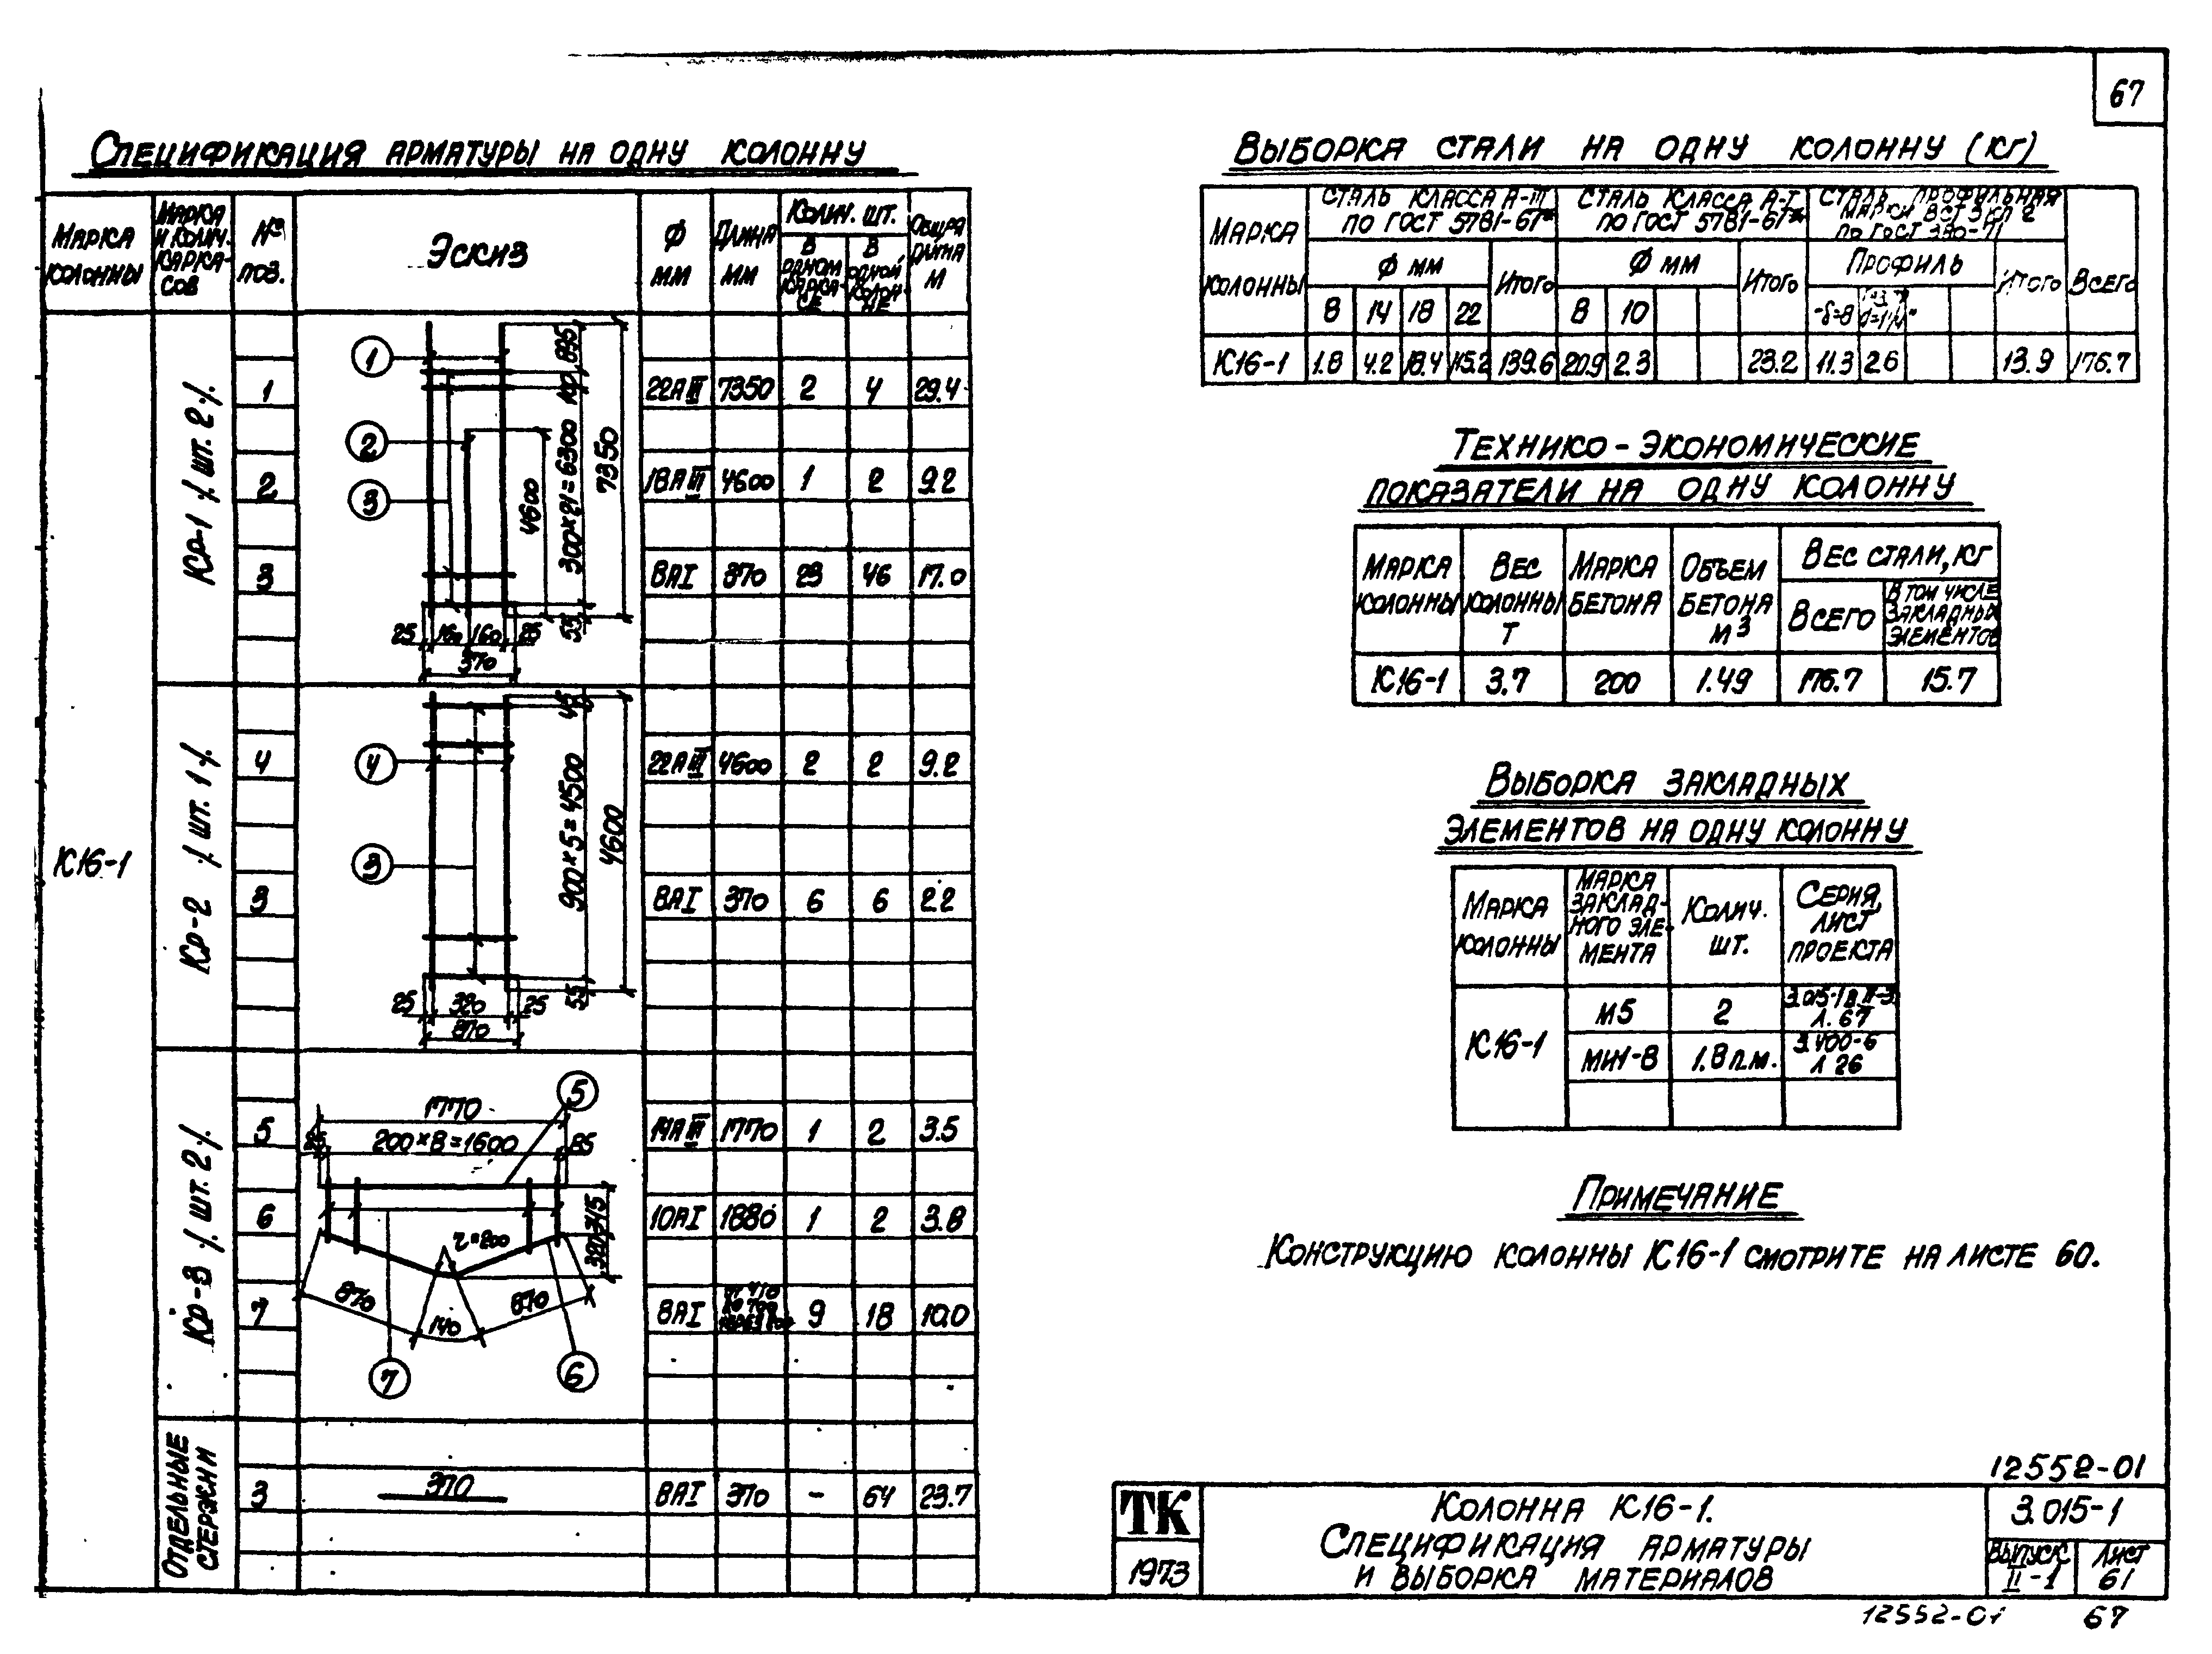 67
Спецификация арматуры на одну колонну
Марка колонны
Марка и колич. каркасов
№ поз.
Эскиз
Ф мм
Длина мм
Колич. шт.
в одном каркасе
в одной колонне
Общая длина м
К16-1
Кр-1 /шт. 2/.
1
2
3
895
300×21=6300
7350
4600
55
25 160 160 25
370
1 22АIII 7350 2 4 29.4
2 18АIII 4600 1 2 9.2
3 8АI 370 23 46 17.0
Кр-2 /шт. 1/.
4
3
45
900×5=4500
4600
55
25 320 25
370
4 22АIII 4600 2 2 9.2
3 8АI 370 6 6 2.2
Кр-3 /шт. 2/.
5
1770
85 200×8=1600 85
320
r=200
870 140 870
7
6
5 14АIII 1770 1 2 3.5
6 10АI 1880 1 2 3.8
7 8АI 9 18 10.0
Отдельные стержни
3 370 8АI 370 - 64 23.7
Выборка стали на одну колонну (кг)
Марка колонны
Сталь класса А-III по ГОСТ 5781-61*
Сталь класса А-I по ГОСТ 5781-61*
Сталь профильная марки ВСт3кп2 по ГОСТ 380-71
Всего
Ф мм
Итого
Ф мм
Итого
Профиль
Итого
8 14 18 22 8 10 -δ=8
К16-1 1.8 4.2 18.4 115.2 139.6 20.9 2.3 23.2 11.3 2.6 13.9 176.7
Технико-экономические
показатели на одну колонну
Марка колонны
Вес колонны т
Марка бетона
Объем бетона м3
Вес стали, кг
Всего
В том числе закладных элементов
К16-1 3.7 200 1.49 176.7 15.7
Выборка закладных
элементов на одну колонну
Марка колонны
Марка закладного элемента
Колич. шт.
Серия, лист проекта
К16-1
М5 2 3.015-1 В.II-3 Л. 67
МИ1-8 1.8 п.м. 3.400-6 Л 26
Примечание
Конструкцию колонны К16-1 смотрите на листе 60.
12552-01
ТК
1973
Колонна К16-1.
Спецификация арматуры
и выборка материалов
3.015-1
Выпуск II-1
Лист 61
12552-01 67